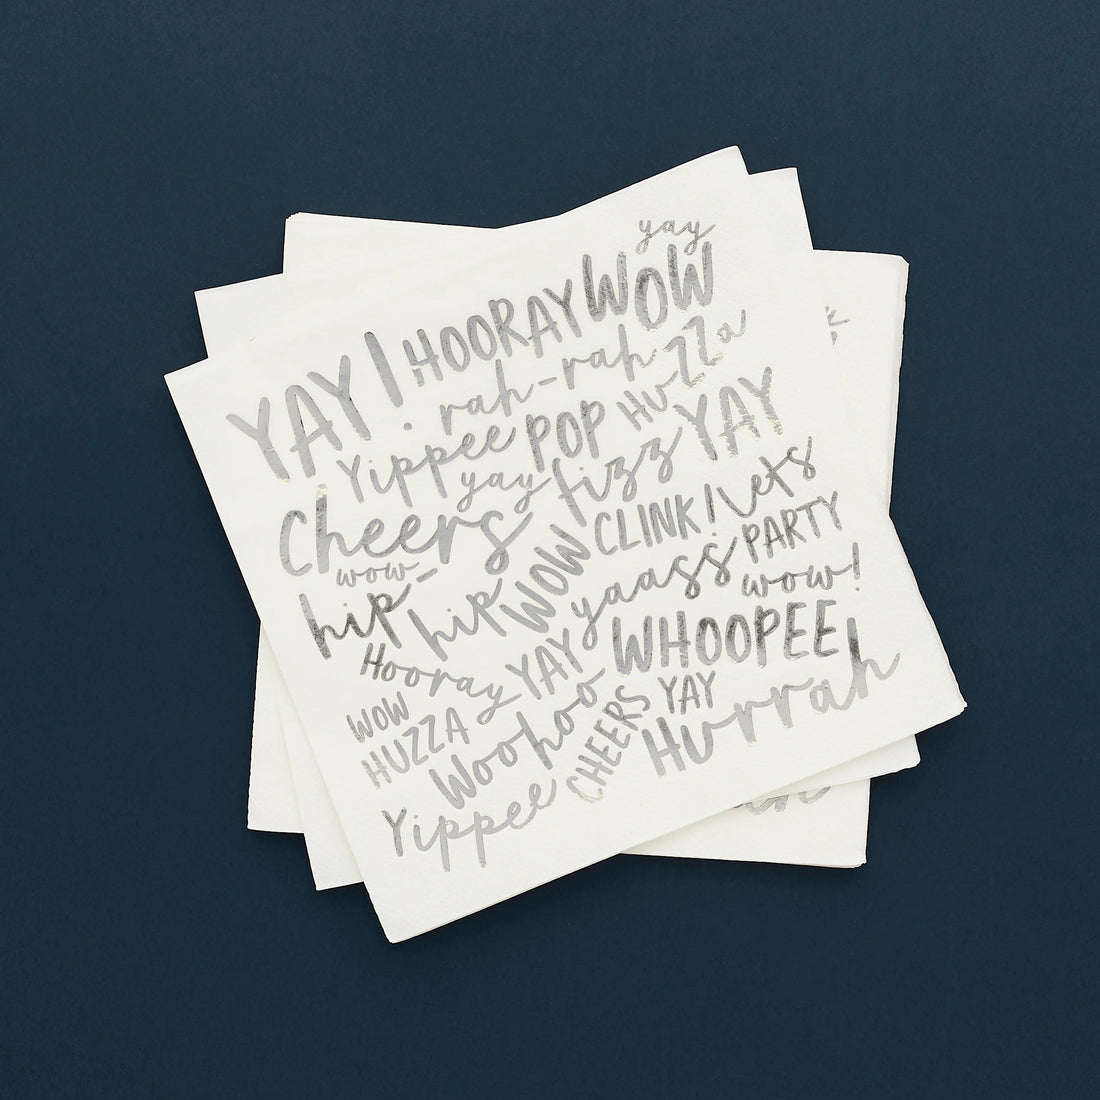 yay
YAY! HOORAY WOW
rah-rah Huzza
Yippee POP fizz YAY
yay
Cheers CLINK! Lets
wow PARTY
hip hip WOW yaass wow!
Hooray YAY WHOOPEE
WOW
HUZZA Woohoo CHEERS YAY
Yippee Hurrah